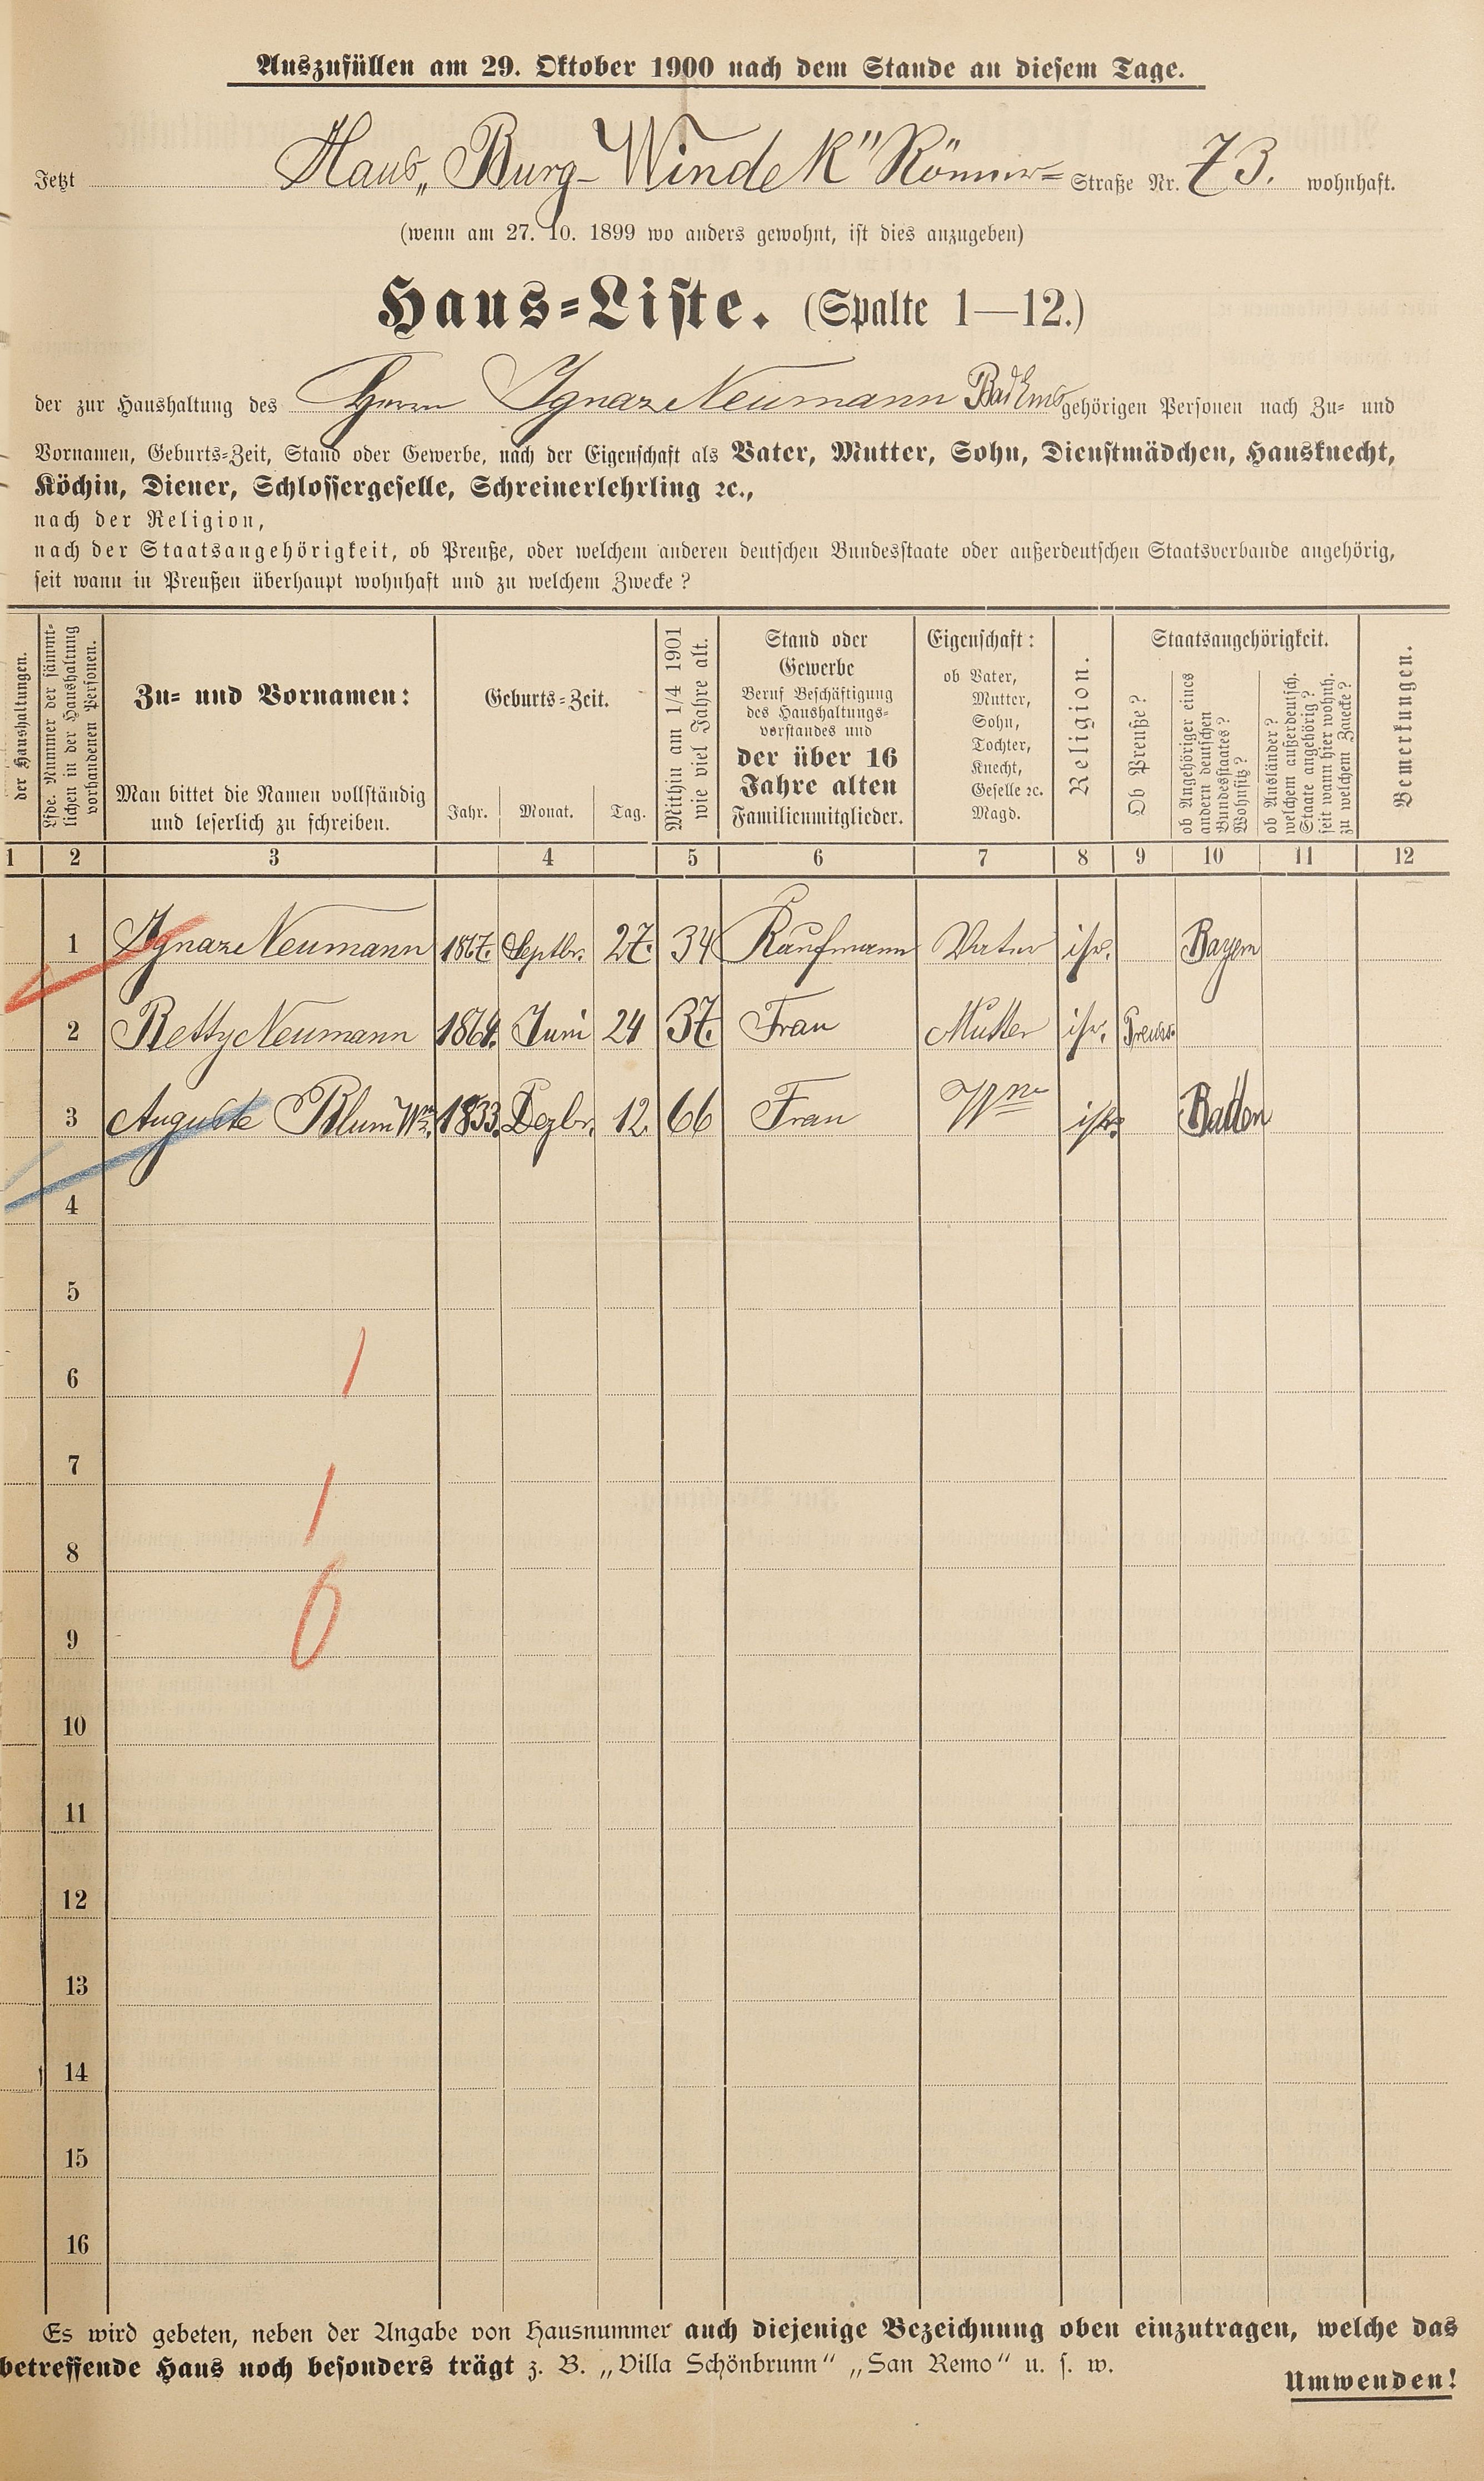 Auszufüllen am 29. Oktober 1900 nach dem Stande an diesem Tage.
Jetzt Haus „Burg-Windek" Römer= Straße Nr. 73. wohnhaft.
(wenn am 27. 10. 1899 wo anders gewohnt, ist dies anzugeben)
Haus=Liste. (Spalte 1—12.)
der zur Haushaltung des Herrn Ignaz Neumann Bad Ems gehörigen Personen nach Zu- und
Vornamen, Geburts-Zeit, Stand oder Gewerbe, nach der Eigenschaft als Vater, Mutter, Sohn, Dienstmädchen, Hausknecht,
Köchin, Diener, Schlossergeselle, Schreinerlehrling ꝛc.,
nach der Religion,
nach der Staatsangehörigkeit, ob Preuße, oder welchem anderen deutschen Bundesstaate oder außerdeutschen Staatsverbande angehörig,
seit wann in Preußen überhaupt wohnhaft und zu welchem Zwecke?
der Haushaltungen.
Lfde. Nummer der sämmt-
lichen in der Haushaltung
vorhandenen Personen.
Zu- und Vornamen:
Man bittet die Namen vollständig
und leserlich zu schreiben.
Geburts-Zeit.
Jahr. Monat. Tag.
Mithin am 1/4 1901
wie viel Jahre alt.
Stand oder
Gewerbe
Beruf Beschäftigung
des Haushaltungs-
vorstandes und
der über 16
Jahre alten
Familienmitglieder.
Eigenschaft:
ob Vater,
Mutter,
Sohn,
Tochter,
Knecht,
Geselle ꝛc.
Magd.
Religion.
Staatsangehörigkeit.
Ob Preuße?
ob Angehöriger eines
andern deutschen
Bundesstaates?
Wohnsitz?
ob Ausländer?
welchem außerdeutsch.
Staate angehörig?
seit wann hier wohnh.
zu welchem Zwecke?
Bemerkungen.
1 2 3 4 5 6 7 8 9 10 11 12
1 Ignaz Neumann 1867. Septbr. 27. 34 Kaufmann Vater isr. Bayern
2 Betty Neumann 1864. Juni 24 37. Frau Mutter isr. Preuss.
3 Auguste Blum Wwe. 1833. Dezbr. 12. 66 Frau Wwe isr. Baden
4
5
6
1
7
1
8
0
9
10
11
12
13
14
15
16
Es wird gebeten, neben der Angabe von Hausnummer auch diejenige Bezeichnung oben einzutragen, welche das
betreffende Haus noch besonders trägt z. B. „Villa Schönbrunn" „San Remo" u. s. w.
Umwenden!